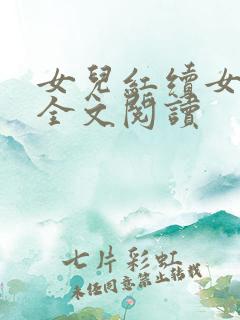 女兒紅續女
全文閱讀
七片彩虹
未任同意禁止轉載